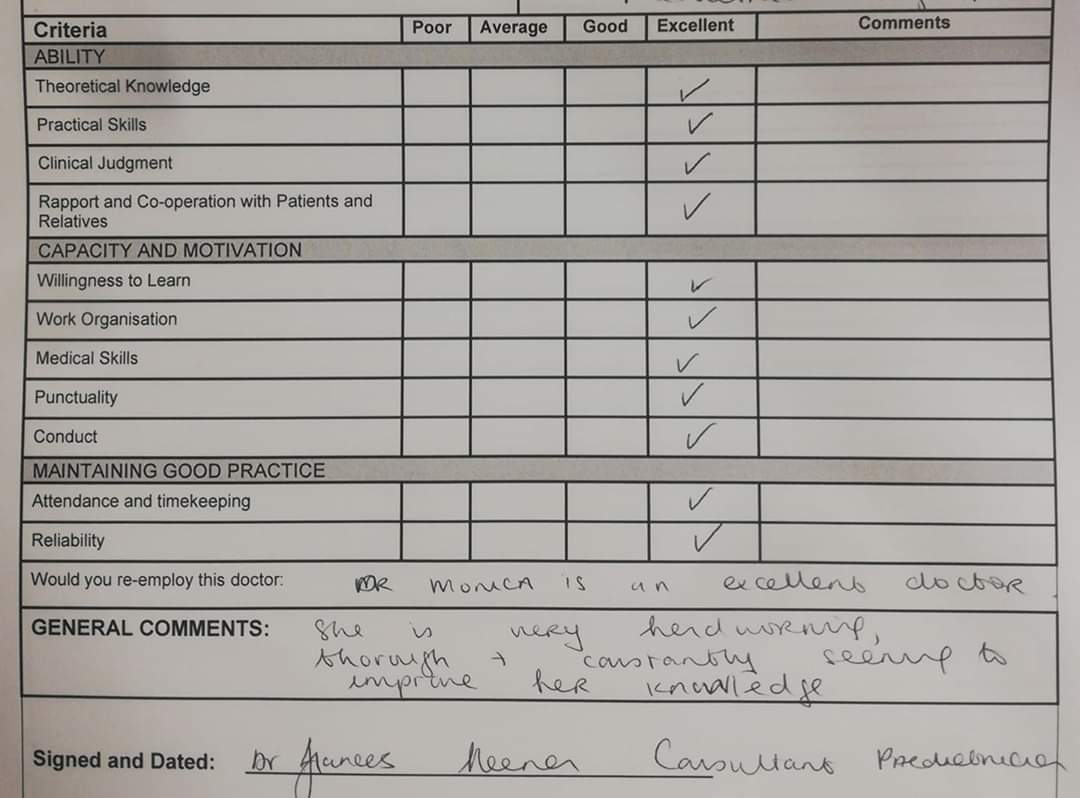 Criteria Poor Average Good Excellent Comments
ABILITY
Theoretical Knowledge ✓
Practical Skills ✓
Clinical Judgment ✓
Rapport and Co-operation with Patients and
Relatives ✓
CAPACITY AND MOTIVATION
Willingness to Learn ✓
Work Organisation ✓
Medical Skills ✓
Punctuality ✓
Conduct ✓
MAINTAINING GOOD PRACTICE
Attendance and timekeeping ✓
Reliability ✓
Would you re-employ this doctor: DR MONICA is an excellent doctor
GENERAL COMMENTS: She is very hardworking,
thorough + constantly seeking to
improve her knowledge
Signed and Dated: Dr Frances Consultant Paediatrician